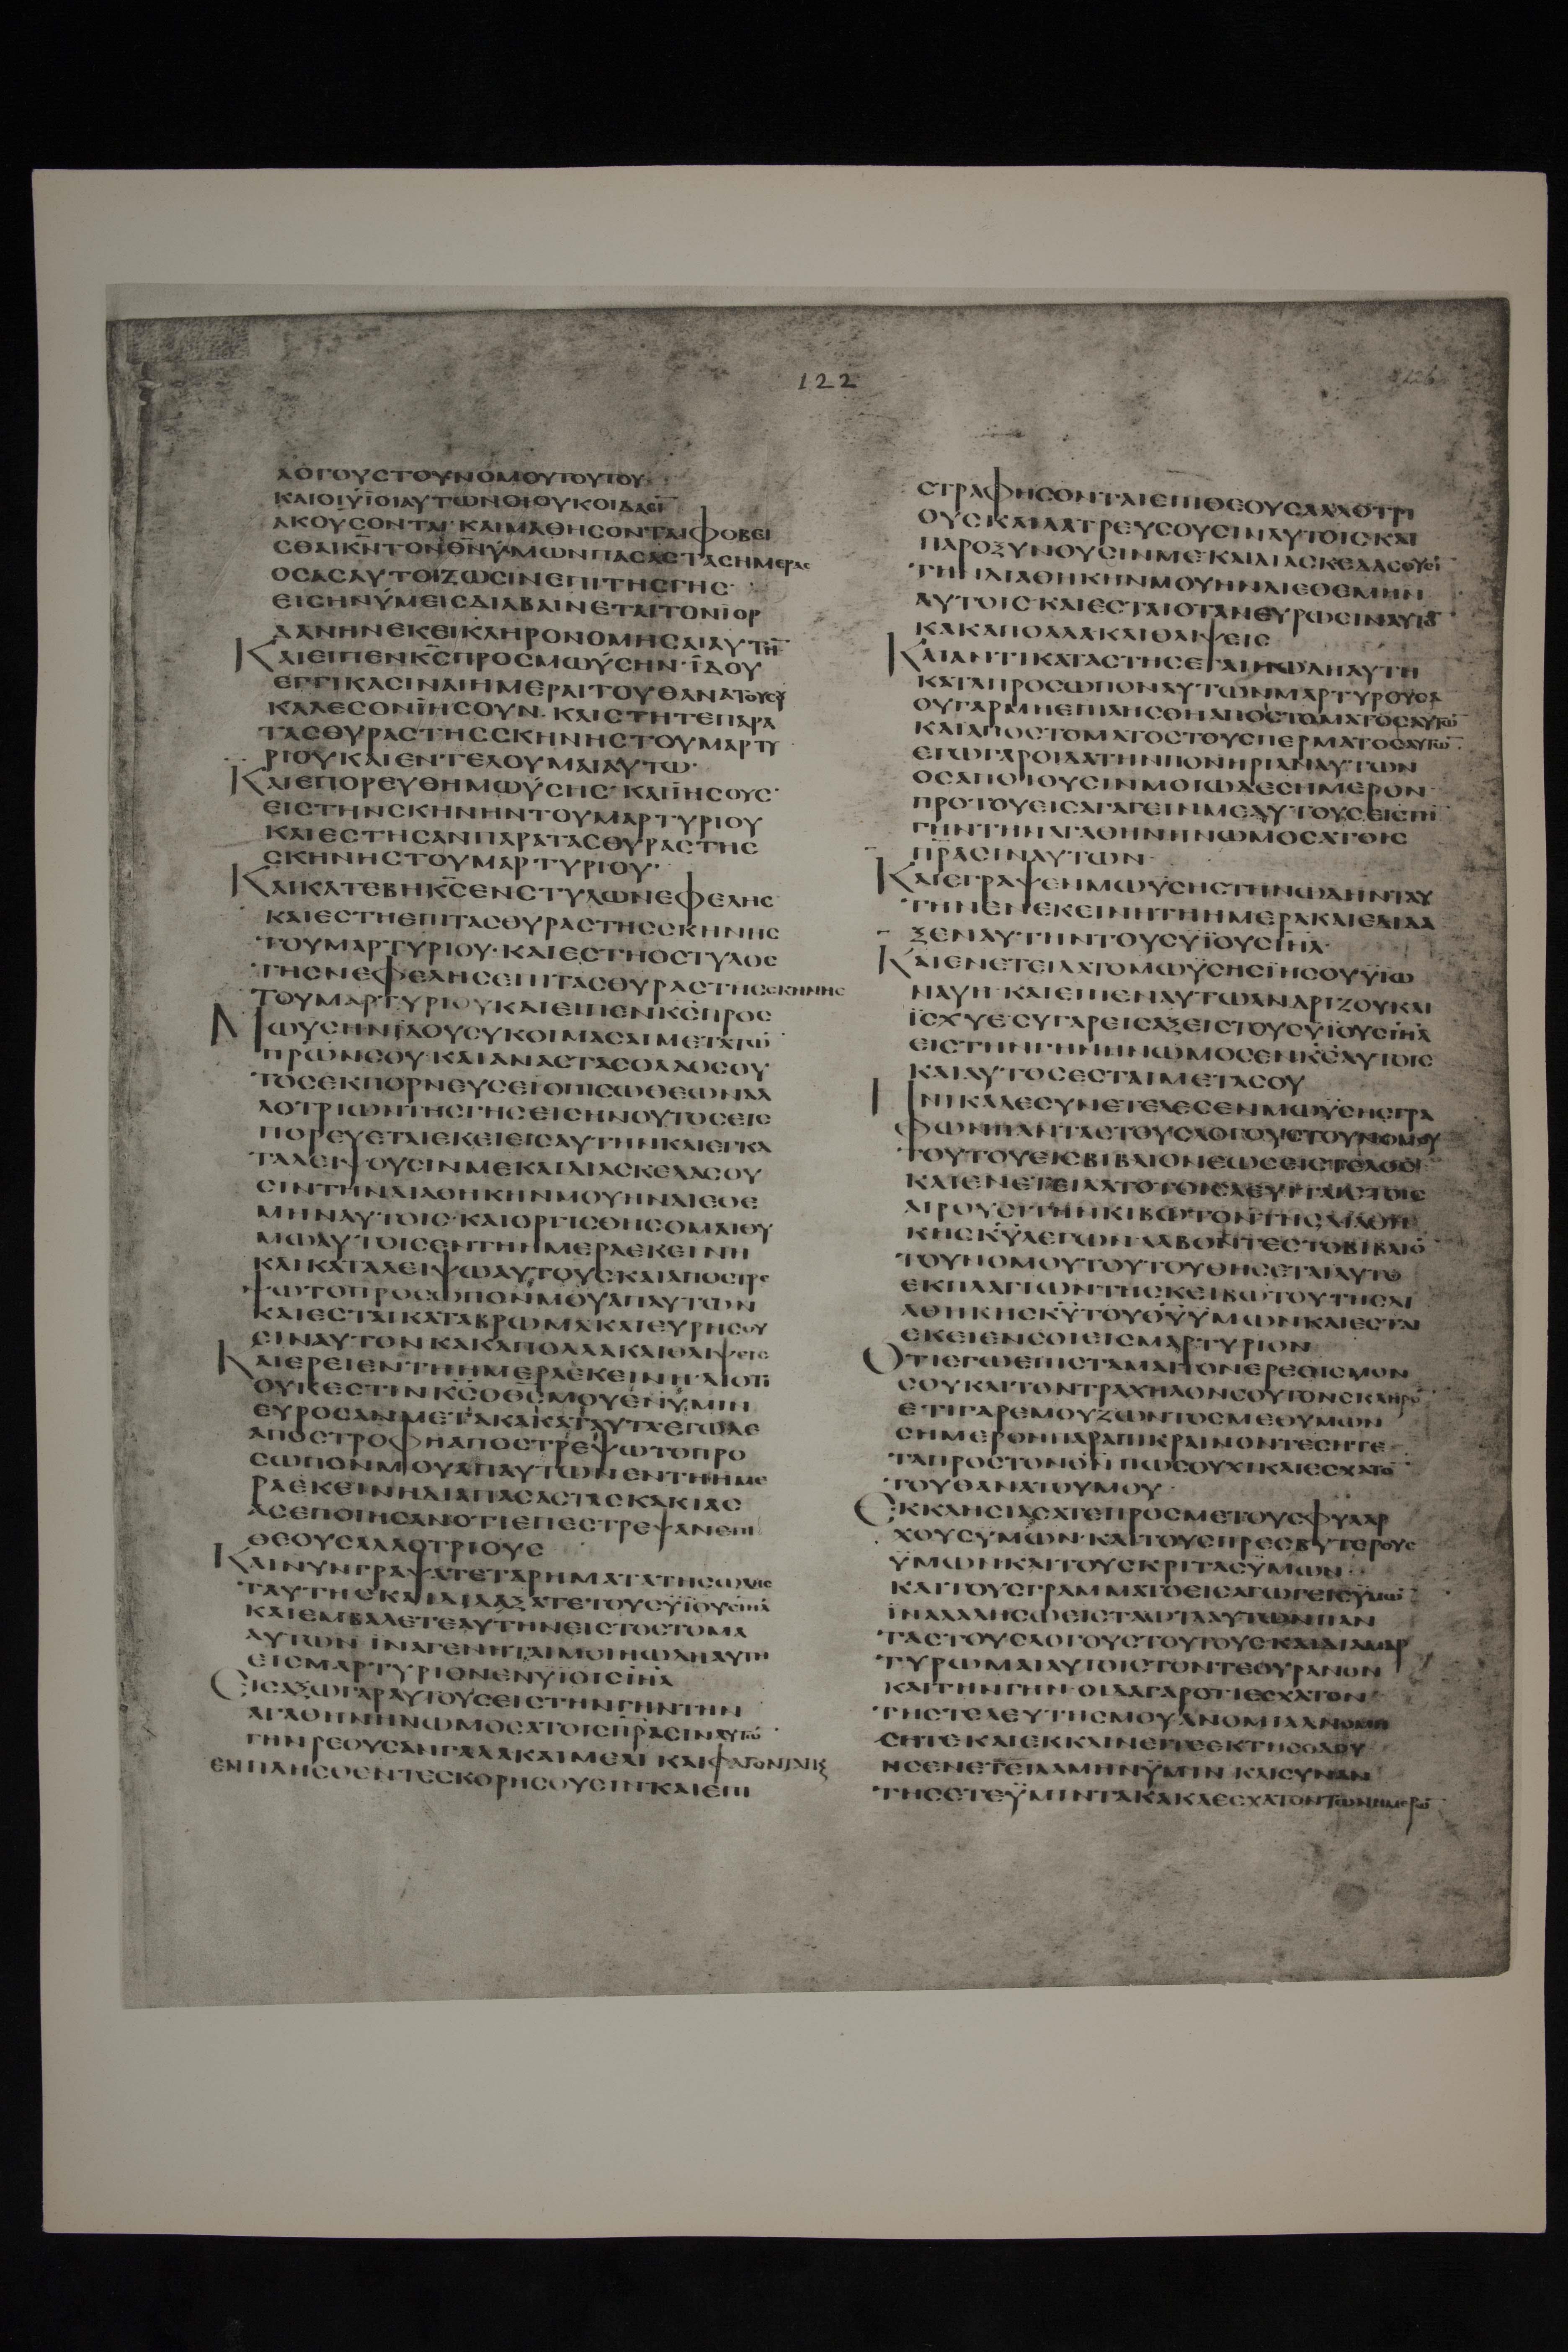 122
126
ΛΟΓΟΥΣΤΟΥΝΟΜΟΥΤΟΥΤΟΥ
ΚΑΙΟΙΫΪΟΙΑΥΤΩΝΟΙΟΥΚΟΙΔΑΣΙ̅
ΑΚΟΥΣΟΝΤΑΙ·ΚΑΙΜΑΘΗΣΟΝΤΑΙΦΟΒΕΙ
ΣΘΑΙΚ̅Ν̅ΤΟΝΘ̅Ν̅ΫΜΩΝΠΑΣΑΣΤΑΣΗΜΕΡΑΣ
ΟΣΑΣΑΥΤΟΙΖΩΣΙΝΕΠΙΤΗΣΓΗΣ·
ΕΙΣΗΝΫΜΕΙΣΔΙΑΒΑΙΝΕΤΑΙΤΟΝΙΟΡ
ΔΑΝΗΝΕΚΕΙΚΛΗΡΟΝΟΜΗΣΑΙΑΥΤΗ̅
ΚΑΙΕΙΠΕΝΚ̅Σ̅ΠΡΟΣΜΩΫΣΗΝ·ΪΔΟΥ
ΕΓΓΙΚΑΣΙΝΑΙΗΜΕΡΑΙΤΟΥΘΑΝΑΤΟΥΣΟΥ
ΚΑΛΕΣΟΝΪΗΣΟΥΝ·ΚΑΙΣΤΗΤΕΠΑΡΑ
ΤΑΣΘΥΡΑΣΤΗΣΣΚΗΝΗΣΤΟΥΜΑΡΤΥ
ΡΙΟΥΚΑΙΕΝΤΕΛΟΥΜΑΙΑΥΤΩ·
ΚΑΙΕΠΟΡΕΥΘΗΜΩΫΣΗΣ·ΚΑΙΪΗΣΟΥΣ·
ΕΙΣΤΗΝΣΚΗΝΗΝΤΟΥΜΑΡΤΥΡΙΟΥ
ΚΑΙΕΣΤΗΣΑΝΠΑΡΑΤΑΣΘΥΡΑΣΤΗΣ
ΣΚΗΝΗΣΤΟΥΜΑΡΤΥΡΙΟΥ·
ΚΑΙΚΑΤΕΒΗΚ̅Σ̅ΕΝΣΤΥΛΩΝΕΦΕΛΗΣ
ΚΑΙΕΣΤΗΕΠΙΤΑΣΘΥΡΑΣΤΗΣΣΚΗΝΗΣ
ΤΟΥΜΑΡΤΥΡΙΟΥ·ΚΑΙΕΣΤΗΟΣΤΥΛΟΣ
ΤΗΣΝΕΦΕΛΗΣΕΠΙΤΑΣΘΥΡΑΣΤΗΣΣΚΗΝΗΣ
ΤΟΥΜΑΡΤΥΡΙΟΥΚΑΙΕΙΠΕΝΚ̅Σ̅ΠΡΟΣ
ΜΩΥΣΗΝΪΔΟΥΣΥΚΟΙΜΑΣΑΙΜΕΤΑΤΩ̅
ΠΡ̅ΩΝΣΟΥ·ΚΑΙΑΝΑΣΤΑΣΟΛΑΟΣΟΥ
ΤΟΣΕΚΠΟΡΝΕΥΣΕΙΟΠΙΣΩΘΕΩΝΑΛ
ΛΟΤΡΙΩΝΤΗΣΓΗΣΕΙΣΗΝΟΥΤΟΣΕΙΣ
ΠΟΡΕΥΕΤΑΙΕΚΕΙΕΙΣΑΥΤΗΝΚΑΙΕΓΚΑ
ΤΑΛΕΙΨΟΥΣΙΝΜΕΚΑΙΔΙΑΣΚΕΔΑΣΟΥ
ΣΙΝΤΗΝΔΙΑΘΗΚΗΝΜΟΥΗΝΔΙΕΘΕ
ΜΗΝΑΥΤΟΙΣ·ΚΑΙΟΡΓΙΣΘΗΣΟΜΑΙΘΥ
ΜΩΑΥΤΟΙΣΕΝΤΗΗΜΕΡΑΕΚΕΙΝΗ
ΚΑΙΚΑΤΑΛΕΙΨΩΑΥΤΟΥΣΚΑΙΑΠΟΣΤΡΕ
ΨΩΤΟΠΡΟΣΩΠΟΝΜΟΥΑΠΑΥΤΩΝ
ΚΑΙΕΣΤΑΙΚΑΤΑΒΡΩΜΑΚΑΙΕΥΡΗΣΟΥ
ΣΙΝΑΥΤΟΝΚΑΚΑΠΟΛΛΑΚΑΙΘΛΙΨΕΙΣ
ΚΑΙΕΡΕΙΕΝΤΗΗΜΕΡΑΕΚΕΙΝΗ·ΔΙΟΤΙ
ΟΥΚΕΣΤΙΝΚ̅Σ̅ΟΘ̅Σ̅ΜΟΥΕΝΫΜΙΝ
ΕΥΡΟΣΑΝΜΕΤΑΚΑΚΑΤΑΥΤΑΕΓΩΔΕ
ΑΠΟΣΤΡΟΦΗΑΠΟΣΤΡΕΨΩΤΟΠΡΟ
ΣΩΠΟΝΜΟΥΑΠΑΥΤΩΝΕΝΤΗΗΜΕ
ΡΑΕΚΕΙΝΗΔΙΑΠΑΣΑΣΤΑΣΚΑΚΙΑΣ
ΑΣΕΠΟΙΗΣΑΝΟΤΙΕΠΕΣΤΡΕΨΑΝΕΠΙ
ΘΕΟΥΣΑΛΛΟΤΡΙΟΥΣ
ΚΑΙΝΥΝΓΡΑΨΑΤΕΤΑΡΗΜΑΤΑΤΗΣΩΔΗΣ
ΤΑΥΤΗΣΚΑΙΔΙΔΑΞΑΤΕΤΟΥΣΫΪΟΥΣΙ̅Η̅Λ̅
ΚΑΙΕΜΒΑΛΕΤΕΑΥΤΗΝΕΙΣΤΟΣΤΟΜΑ
ΑΥΤΩΝΪΝΑΓΕΝΗΤΑΙΜΟΙΗΩΔΗΑΥΤΗ
ΕΙΣΜΑΡΤΥΡΙΟΝΕΝΥΪΟΙΣΙ̅Η̅Λ̅
ΕΙΣΑΞΩΓΑΡΑΥΤΟΥΣΕΙΣΤΗΝΓΗΝΤΗΝ
ΑΓΑΘΗΝΗΝΩΜΟΣΑΤΟΙΣΠ̅Ρ̅ΑΣΙΝΑΥΤΩ̅
ΓΗΝΡΕΟΥΣΑΝΓΑΛΑΚΑΙΜΕΛΙΚΑΙΦΑΓΟΝΤΑΙΚ̣
ΕΜΠΛΗΣΘΕΝΤΕΣΚΟΡΗΣΟΥΣΙΝΚΑΙΕΠΙ
ΣΤΡΑΦΗΣΟΝΤΑΙΕΠΙΘΕΟΥΣΑΛΛΟΤΡΙ
ΟΥΣΚΑΙΛΑΤΡΕΥΣΟΥΣΙΝΑΥΤΟΙΣΚΑΙ
ΠΑΡΟΞΥΝΟΥΣΙΝΜΕΚΑΙΔΙΑΣΚΕΔΑΣΟΥΣΙ̅
ΤΗΝΔΙΑΘΗΚΗΝΜΟΥΗΝΔΙΕΘΕΜΗΝ
ΑΥΤΟΙΣΚΑΙΕΣΤΑΙΟΤΑΝΕΥΡΩΣΙΝΑΥΤΟ̅
ΚΑΚΑΠΟΛΛΑΚΑΙΘΛΙΨΕΙΣ
ΚΑΙΑΝΤΙΚΑΤΑΣΤΗΣΕΤΑΙΗΩΔΗΑΥΤΗ
ΚΑΤΑΠΡΟΣΩΠΟΝΑΥΤΩΝΜΑΡΤΥΡΟΥΣΑ
ΟΥΓΑΡΜΗΕΠΙΛΗΣΘΗΑΠΟΣΤΟΜΑΤΟΣΑΥΤΩ̅
ΚΑΙΑΠΟΣΤΟΜΑΤΟΣΤΟΥΣΠΕΡΜΑΤΟΣΑΥΤΩ̅
ΕΓΩΓΑΡΟΙΔΑΤΗΝΠΟΝΗΡΙΑΝΑΥΤΩΝ
ΟΣΑΠΟΙΟΥΣΙΝΜΟΙΩΔΕΣΗΜΕΡΟΝ
ΠΡΟΤΟΥΕΙΣΑΓΑΓΕΙΝΜΕΑΥΤΟΥΣΕΙΣΤΗ̅
ΓΗΝΤΗΝΑΓΑΘΗΝΗΝΩΜΟΣΑΤΟΙΣ
Π̅Ρ̅ΑΣΙΝΑΥΤΩΝ·
ΚΑΙΕΓΡΑΨΕΝΜΩΫΣΗΣΤΗΝΩΔΗΝΤΑΥ
ΤΗΝΕΝΕΚΕΙΝΗΤΗΗΜΕΡΑΚΑΙΕΔΙΔΑ
ΞΕΝΑΥΤΗΝΤΟΥΣΥΪΟΥΣΙ̅Η̅Λ̅·
ΚΑΙΕΝΕΤΕΙΛΑΤΟΜΩΫΣΗΣΪΗΣΟΥΫΪΩ
ΝΑΥΗ·ΚΑΙΕΙΠΕΝΑΥΤΩΑΝΔΡΙΖΟΥΚΑΙ
ΪΣΧΥΕ·ΣΥΓΑΡΕΙΣΑΞΕΙΣΤΟΥΣΫΪΟΥΣΙ̅Η̅Λ̅
ΕΙΣΤΗΝΓΗΝΗΝΩΜΟΣΕΝΚ̅Σ̅ΑΥΤΟΙΣ
ΚΑΙΑΥΤΟΣΕΣΤΑΙΜΕΤΑΣΟΥ
ΗΝΙΚΑΔΕΣΥΝΕΤΕΛΕΣΕΝΜΩΫΣΗΣΓΡΑ
ΦΩΝΠΑΝΤΑΣΤΟΥΣΛΟΓΟΥΣΤΟΥΝΟΜΟΥ
ΤΟΥΤΟΥΕΙΣΒΙΒΛΙΟΝΕΩΣΕΙΣΤΕΛΟΣ
ΚΑΙΕΝΕΤΕΙΛΑΤΟΤΟΙΣΛΕΥΙΤΑΙΣΤΟΙΣ
ΑΙΡΟΥΣΙΤΗΝΚΙΒΩΤΟΝΤΗΣΔΙΑΘΗ
ΚΗΣΚ̅Υ̅ΛΕΓΩΝ·ΛΑΒΟΝΤΕΣΤΟΒΙΒΛΙΟ̅
ΤΟΥΝΟΜΟΥΤΟΥΤΟΥΘΗΣΕΤΑΙΑΥΤΟ
ΕΚΠΛΑΓΙΩΝΤΗΣΚΕΙΒΩΤΟΥΤΗΣΔΙ
ΑΘΗΚΗΣΚ̅Υ̅ΤΟΥΘ̅Υ̅ΫΜΩΝΚΑΙΕΣΤΑΙ
ΕΚΕΙΕΝΣΟΙΕΙΣΜΑΡΤΥΡΙΟΝ
ΟΤΙΕΓΩΕΠΙΣΤΑΜΑΙΤΟΝΕΡΕΘΙΣΜΟΝ
ΣΟΥΚΑΙΤΟΝΤΡΑΧΗΛΟΝΣΟΥΤΟΝΣΚΛΗΡΟ̅
ΕΤΙΓΑΡΕΜΟΥΖΩΝΤΟΣΜΕΘΥΜΩΝ
ΣΗΜΕΡΟΝΠΑΡΑΠΙΚΡΑΙΝΟΝΤΕΣΗΤΕ
ΤΑΠΡΟΣΤΟΝΘ̅Ν̅ΠΩΣΟΥΧΙΚΑΙΕΣΧΑΤΟ̅
ΤΟΥΘΑΝΑΤΟΥΜΟΥ·
ΕΚΚΛΗΣΙΑΣΑΤΕΠΡΟΣΜΕΤΟΥΣΦΥΛΑΡ
ΧΟΥΣΥΜΩΝ·ΚΑΙΤΟΥΣΠΡΕΣΒΥΤΕΡΟΥΣ
ΫΜΩΝΚΑΙΤΟΥΣΚΡΙΤΑΣΫΜΩΝ
ΚΑΙΤΟΥΣΓΡΑΜΜΑΤΟΕΙΣΑΓΩΓΕΙΣΫΜΩ̅
ΪΝΑΛΑΛΗΣΩΕΙΣΤΑΩΤΑΑΥΤΩΝΠΑΝ
ΤΑΣΤΟΥΣΛΟΓΟΥΣΤΟΥΤΟΥΣΚΑΙΔΙΑΜΑΡ
ΤΥΡΩΜΑΙΑΥΤΟΙΣΤΟΝΤΕΟΥΡΑΝΟΝ
ΚΑΙΤΗΝΓΗΝ·ΟΙΔΑΓΑΡΟΤΙΕΣΧΑΤΟΝ
ΤΗΣΤΕΛΕΥΤΗΣΜΟΥΑΝΟΜΙΑΑΝΟΜΗ
ΣΗΤΕΚΑΙΕΚΚΛΙΝΕΙΤΕΕΚΤΗΣΟΔΟΥ
ΗΣΕΝΕΤΕΙΛΑΜΗΝΫΜΙΝΚΑΙΣΥΝΑΝ
ΤΗΣΕΤΕΫΜΙΝΤΑΚΑΚΑΕΣΧΑΤΟΝΤΩΝΗΜΕΡΩ̅